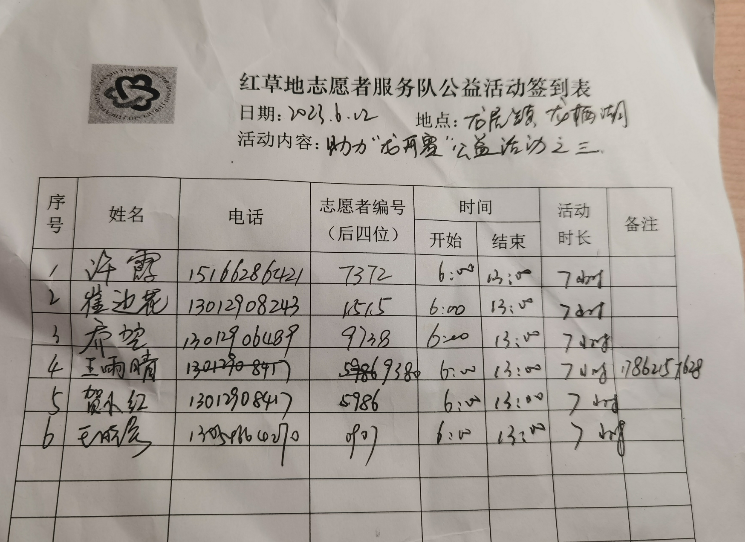 红草地志愿者服务队公益活动签到表
日期: 2023.6.22 地点: 龙居镇 龙栖湖
活动内容: 助力"龙 赛"公益活动之三
序号 姓名 电话 志愿者编号（后四位） 时间 开始 结束 活动时长 备注
1 许霞 15166286421 7372 6:00 13:00 7小时
2 崔迎花 13012908243 1515 6:00 13:00 7小时
3 13012906489 9738 6:00 13:00 7小时
4 王雨晴 13012908417 9380 6:00 13:00 7小时 17862157628
5 贺小红 13012908417 5986 6:00 13:00 7小时
6 0907 6:00 13:00 7小时